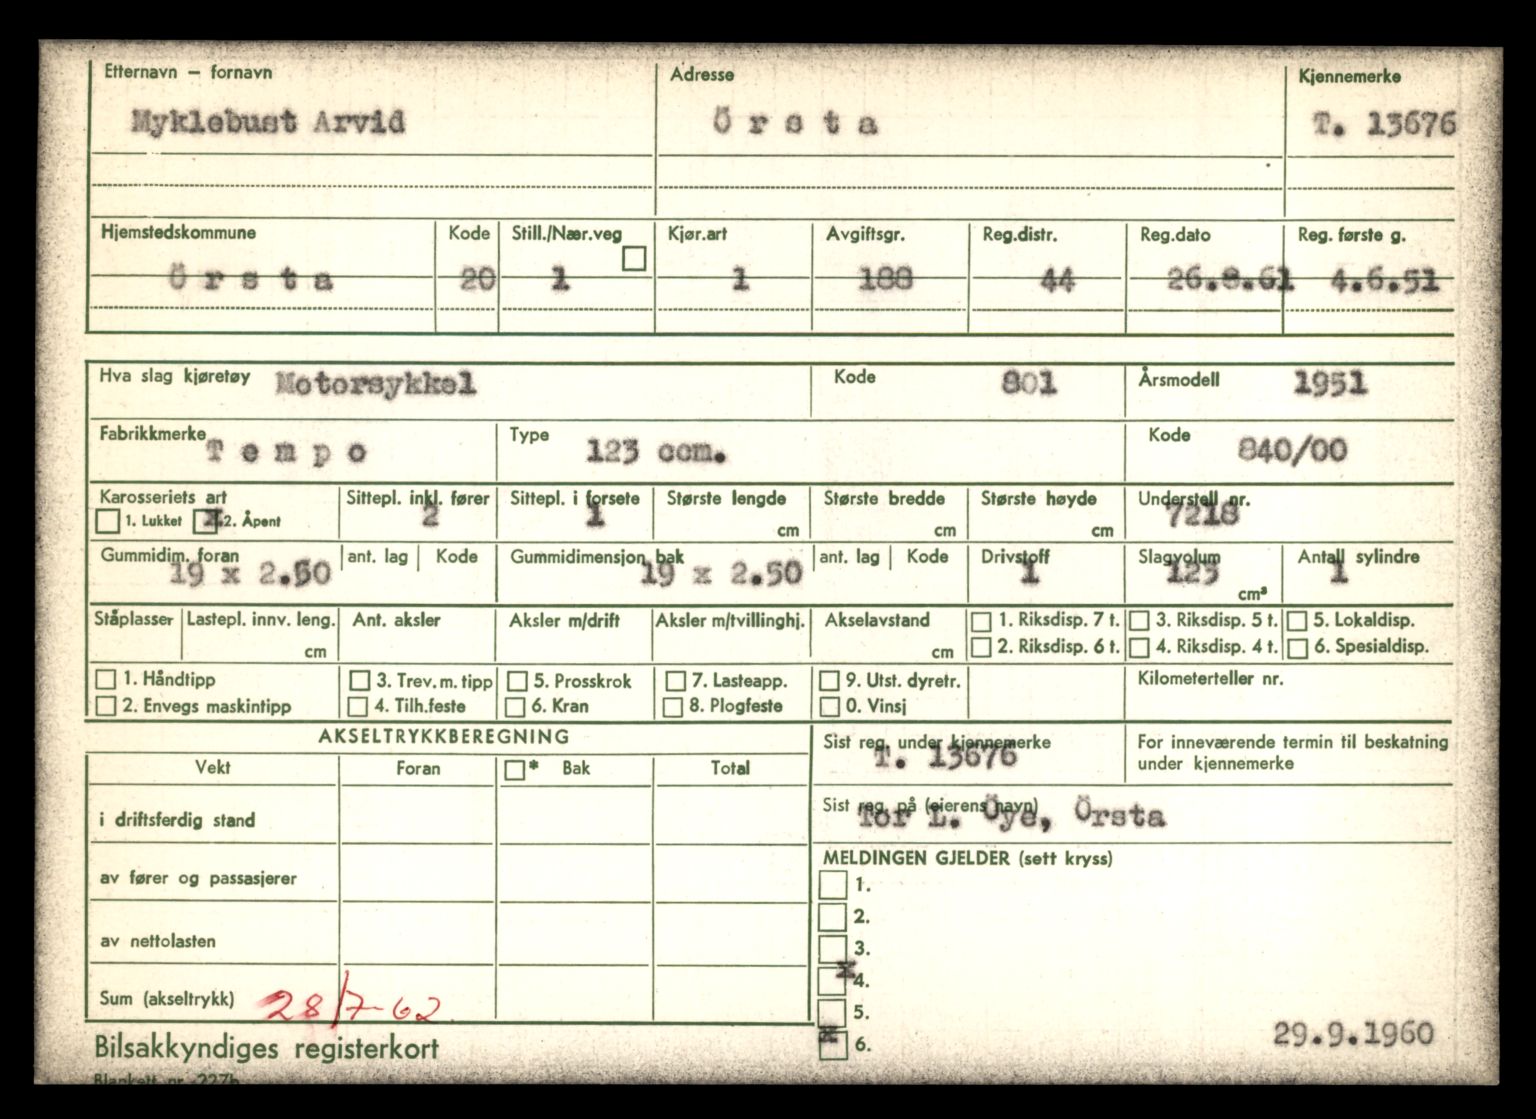 Etternavn – fornavn Adresse Kjennemerke
Myklebust Arvid Ö r s t a T. 13676
Hjemstedskommune Kode Still./Nær.veg Kjør.art Avgiftsgr. Reg.distr. Reg.dato Reg. første g.
Ö r s t a 20 1 1 188 44 26.8.61 4.6.51
Hva slag kjøretøy Motorsykkel Kode 801 Årsmodell 1951
Fabrikkmerke T e m p o Type 123 ccm. Kode 840/00
Karosseriets art Sittepl. inkl. fører Sittepl. i forsete Største lengde Største bredde Største høyde Understell nr.
1. Lukket x 2. Åpent 2 1 cm cm cm 7218
Gummidim. foran ant. lag Kode Gummidimensjon bak ant. lag Kode Drivstoff Slagvolum Antall sylindre
19 x 2.50 19 x 2.50 1 123 cm³ 1
Ståplasser Lastepl. innv. leng. Ant. aksler Aksler m/drift Aksler m/tvillinghj. Akselavstand 1. Riksdisp. 7 t. 3. Riksdisp. 5 t. 5. Lokaldisp.
cm cm 2. Riksdisp. 6 t. 4. Riksdisp. 4 t. 6. Spesialdisp.
1. Håndtipp 3. Trev. m. tipp 5. Prosskrok 7. Lasteapp. 9. Utst. dyretr. Kilometerteller nr.
2. Envegs maskintipp 4. Tilh.feste 6. Kran 8. Plogfeste 0. Vinsj
AKSELTRYKKBEREGNING
Vekt Foran * Bak Total
i driftsferdig stand
av fører og passasjerer
av nettolasten
Sum (akseltrykk) 28/7-62
Sist reg. under kjennemerke For inneværende termin til beskatning
T. 13676 under kjennemerke
Sist reg. på (eierens navn)
Tor L. Öye, Örsta
MELDINGEN GJELDER (sett kryss)
1.
2.
3.
x 4.
5.
x 6.
29.9.1960
Bilsakkyndiges registerkort
Blankett nr. 227b